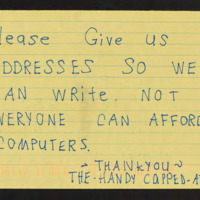 lease Give us
DDRESSES SO WE
AN WRite. NOT
VERYONE CAN AFFORD
COMPUTERS.
~ THANKYOU ~
THE-HANDY CAPPED-A